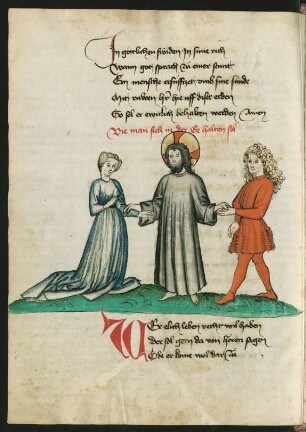 In gotlichen fröiden in sime rich
Wann got sprach zu einer stunt
Ein mensche ersufftzet vmb sine sunde
Mit rüwen hye uff diser erden
So sol er ewiclich behalten werden Amen
Wie man sich in der Ee halten sol
WEr elich leben recht wil haben
Der sol gern da von hören sagen
Obe er kome wol dar zü